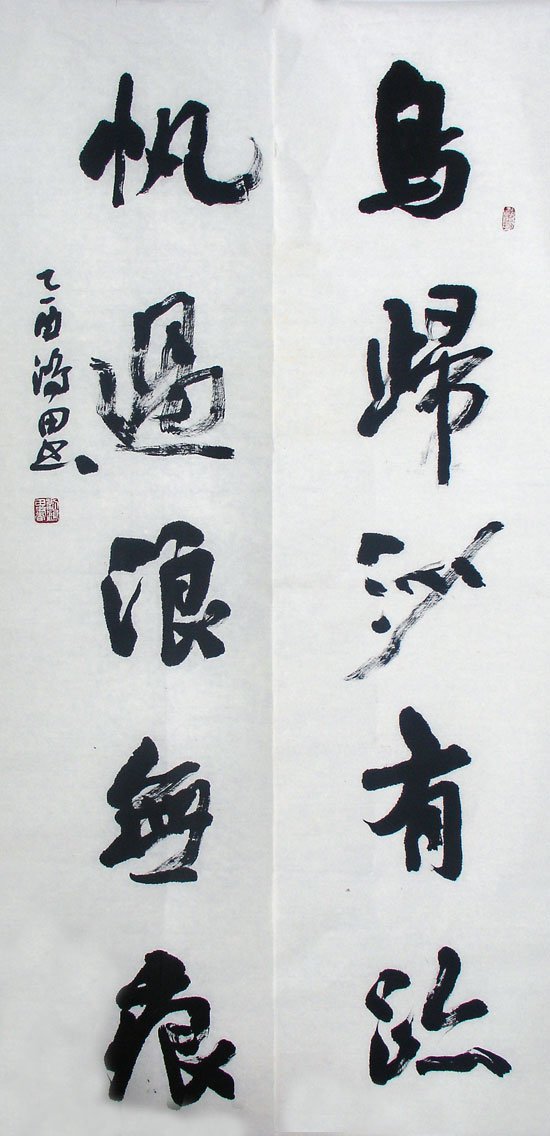 鳥歸沙有跡
帆過浪無痕
乙酉 田書